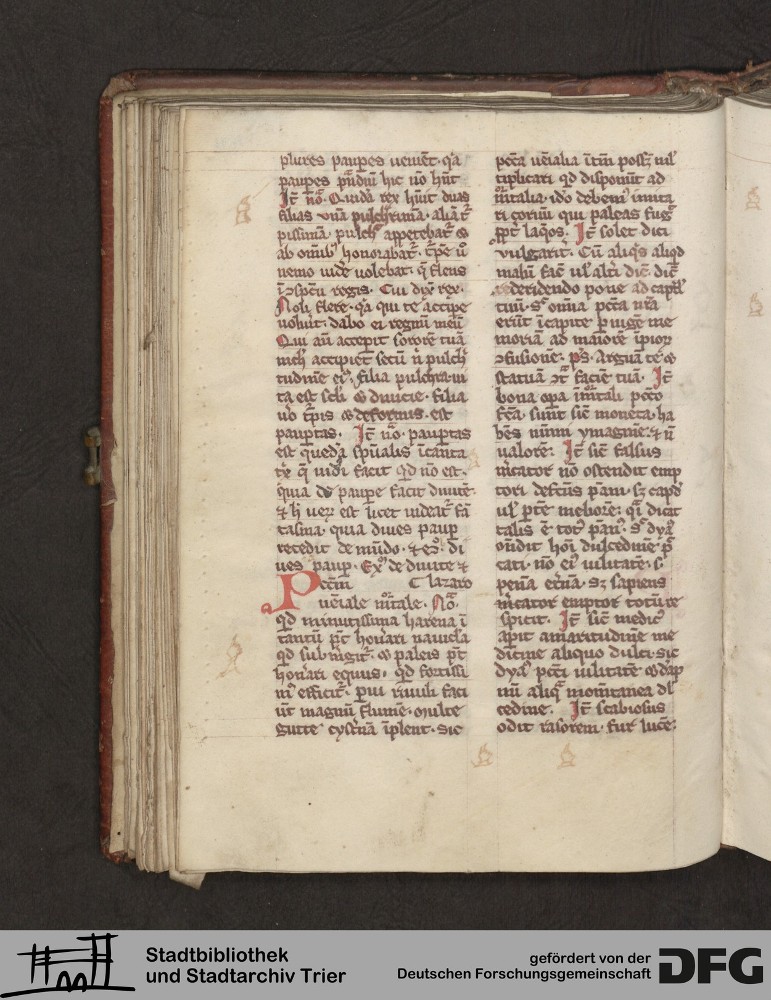 plures paup̄es ueniēt. q̄a
paup̄es p̄ndiū hic nō hn̄t
Jt̄ nō. Quidā rex hūit duas
filias vnā pulch̄rimā. aliā t̄
pissimā. pulch̄ appetebat̄ &
ab omīb' honorabat̄. t̄pē ū
nemo uidē uolebat. q̄ flens
regis. Cui dix̄ rex.
Noli flere. q̄a qui te accipe
uolūit. dabo ei regnū meū
Qui aū accepit sororē tuā
nich̄ accipiet secū n̄ pulch̄
tudinē ei'. filia pulchra ui
ta est sc̄li & diuicie. filia
ū t̄pis & deformis. est
paup̄tas. Jt̄ nō. paup̄tas
est quedā sp̄ualis īcanta
t̄ē q̄ uid̄i facit qd nō est.
quia de paupe facit diuitē.
& h̄ uer̄ est licet uideat̄ fā
tasma. quia diues paup̄
recedit de mūdo. & ec̄ō. di
ues paup̄. Ex̄ de diuite &
Pcc̄m lazaro
uēiale m̄tale. Nō.
qd minutissima harena ī
tantū p̄t hon̄ari nauicla
qd sub m̄git̄. & paleis p̄t
hon̄ari equus. qd fortissi
m' efficit̄. p̄ui riuuli faci
ūt magnū flumē. multe
gutte cyst̄nā īplent. Sic
pcc̄a uēialia ītm̄ possū ml̄
tiplicari qd disponūt ad
m̄talia. idō debem' imita
ri coruū qui paleas fuḡ
p̄pt̄ laq̄os. Jt̄ solet dici
vulgarit̄. Cū aliq̄s aliqd
malū fac̄ ul̄ alt̄i dic̄. dic̄
deridendo pone ad capll̄
tuū. Sꝰ om̄ia pcc̄a nr̄a
erūt īcapite p̄ iuigē me
moriā ad maiorē īpior
ↄfusionē. ps̄. Arguā te &
statuā ↄt̄ faciē tuā. Jt̄
bona opa ī m̄tali pcc̄o
fc̄a sunt sic̄ moneta. ha
bēs nimin ymaginē. & n̄
ualorē. Jt̄ sic̄ falsus
m̄cator nō ostendit emp
tori defc̄us pāni. sꝫ cap̄d
ul̄ p̄tē meliorē. q̄i dicat
talis ē tot' pān'. Sꝰ dyā'
on̄dit hoī dulcedinē. p̄
cati. nō ei' uilitatē. s̄.
penā et̄nā. Sꝫ sapiens
m̄cator emptor totū re
spicit. Jt̄ sic̄ medic'
apit amaritudinē me
dicine aliquo dulci. Sic
dyā' pcc̄i uilitatē
nū aliq̄ momētanea dl̄
cedine. Jt̄ scabiosus
odit rasorem. fur lucē.
Stadtbibliothek
und Stadtarchiv Trier
gefördert von der
Deutschen Forschungsgemeinschaft
DFG